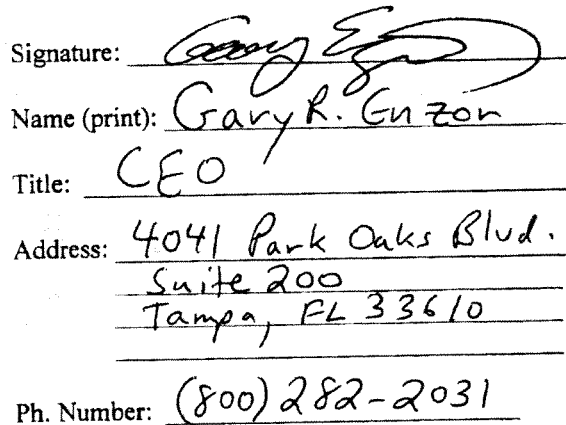 Signature: Gary E
Name (print): Gary R. Enzor
Title: CEO
Address: 4041 Park Oaks Blvd.
Suite 200
Tampa, FL 33610
Ph. Number: (800) 282-2031